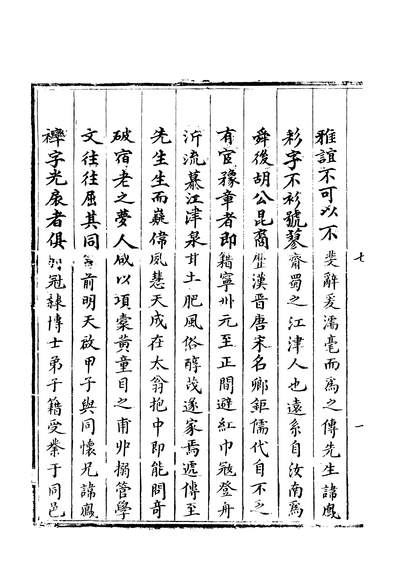 雅誼不可以不斐辭爰濡毫而為之傳先生諱鳳
彩字不衫號蓼齋蜀之江津人也遠系自汝南為
舜後胡公昆裔歷漢晉唐宋名卿鉅儒代自不乏
有宦豫章者即籍寧州元至正間避紅巾寇登舟
泝流慕江津泉甘土肥風俗醇茂遂家焉遞傳至
先生生而嶷偉風慧天成在太翁抱中即能問奇
破宿老之夢人咸以項橐黃童目之甫丱搦管學
文往往屈其同前明天啟甲子與同懷兄諱鳳
字光展者俱冠隸博士弟子籍受業于同邑
七
一